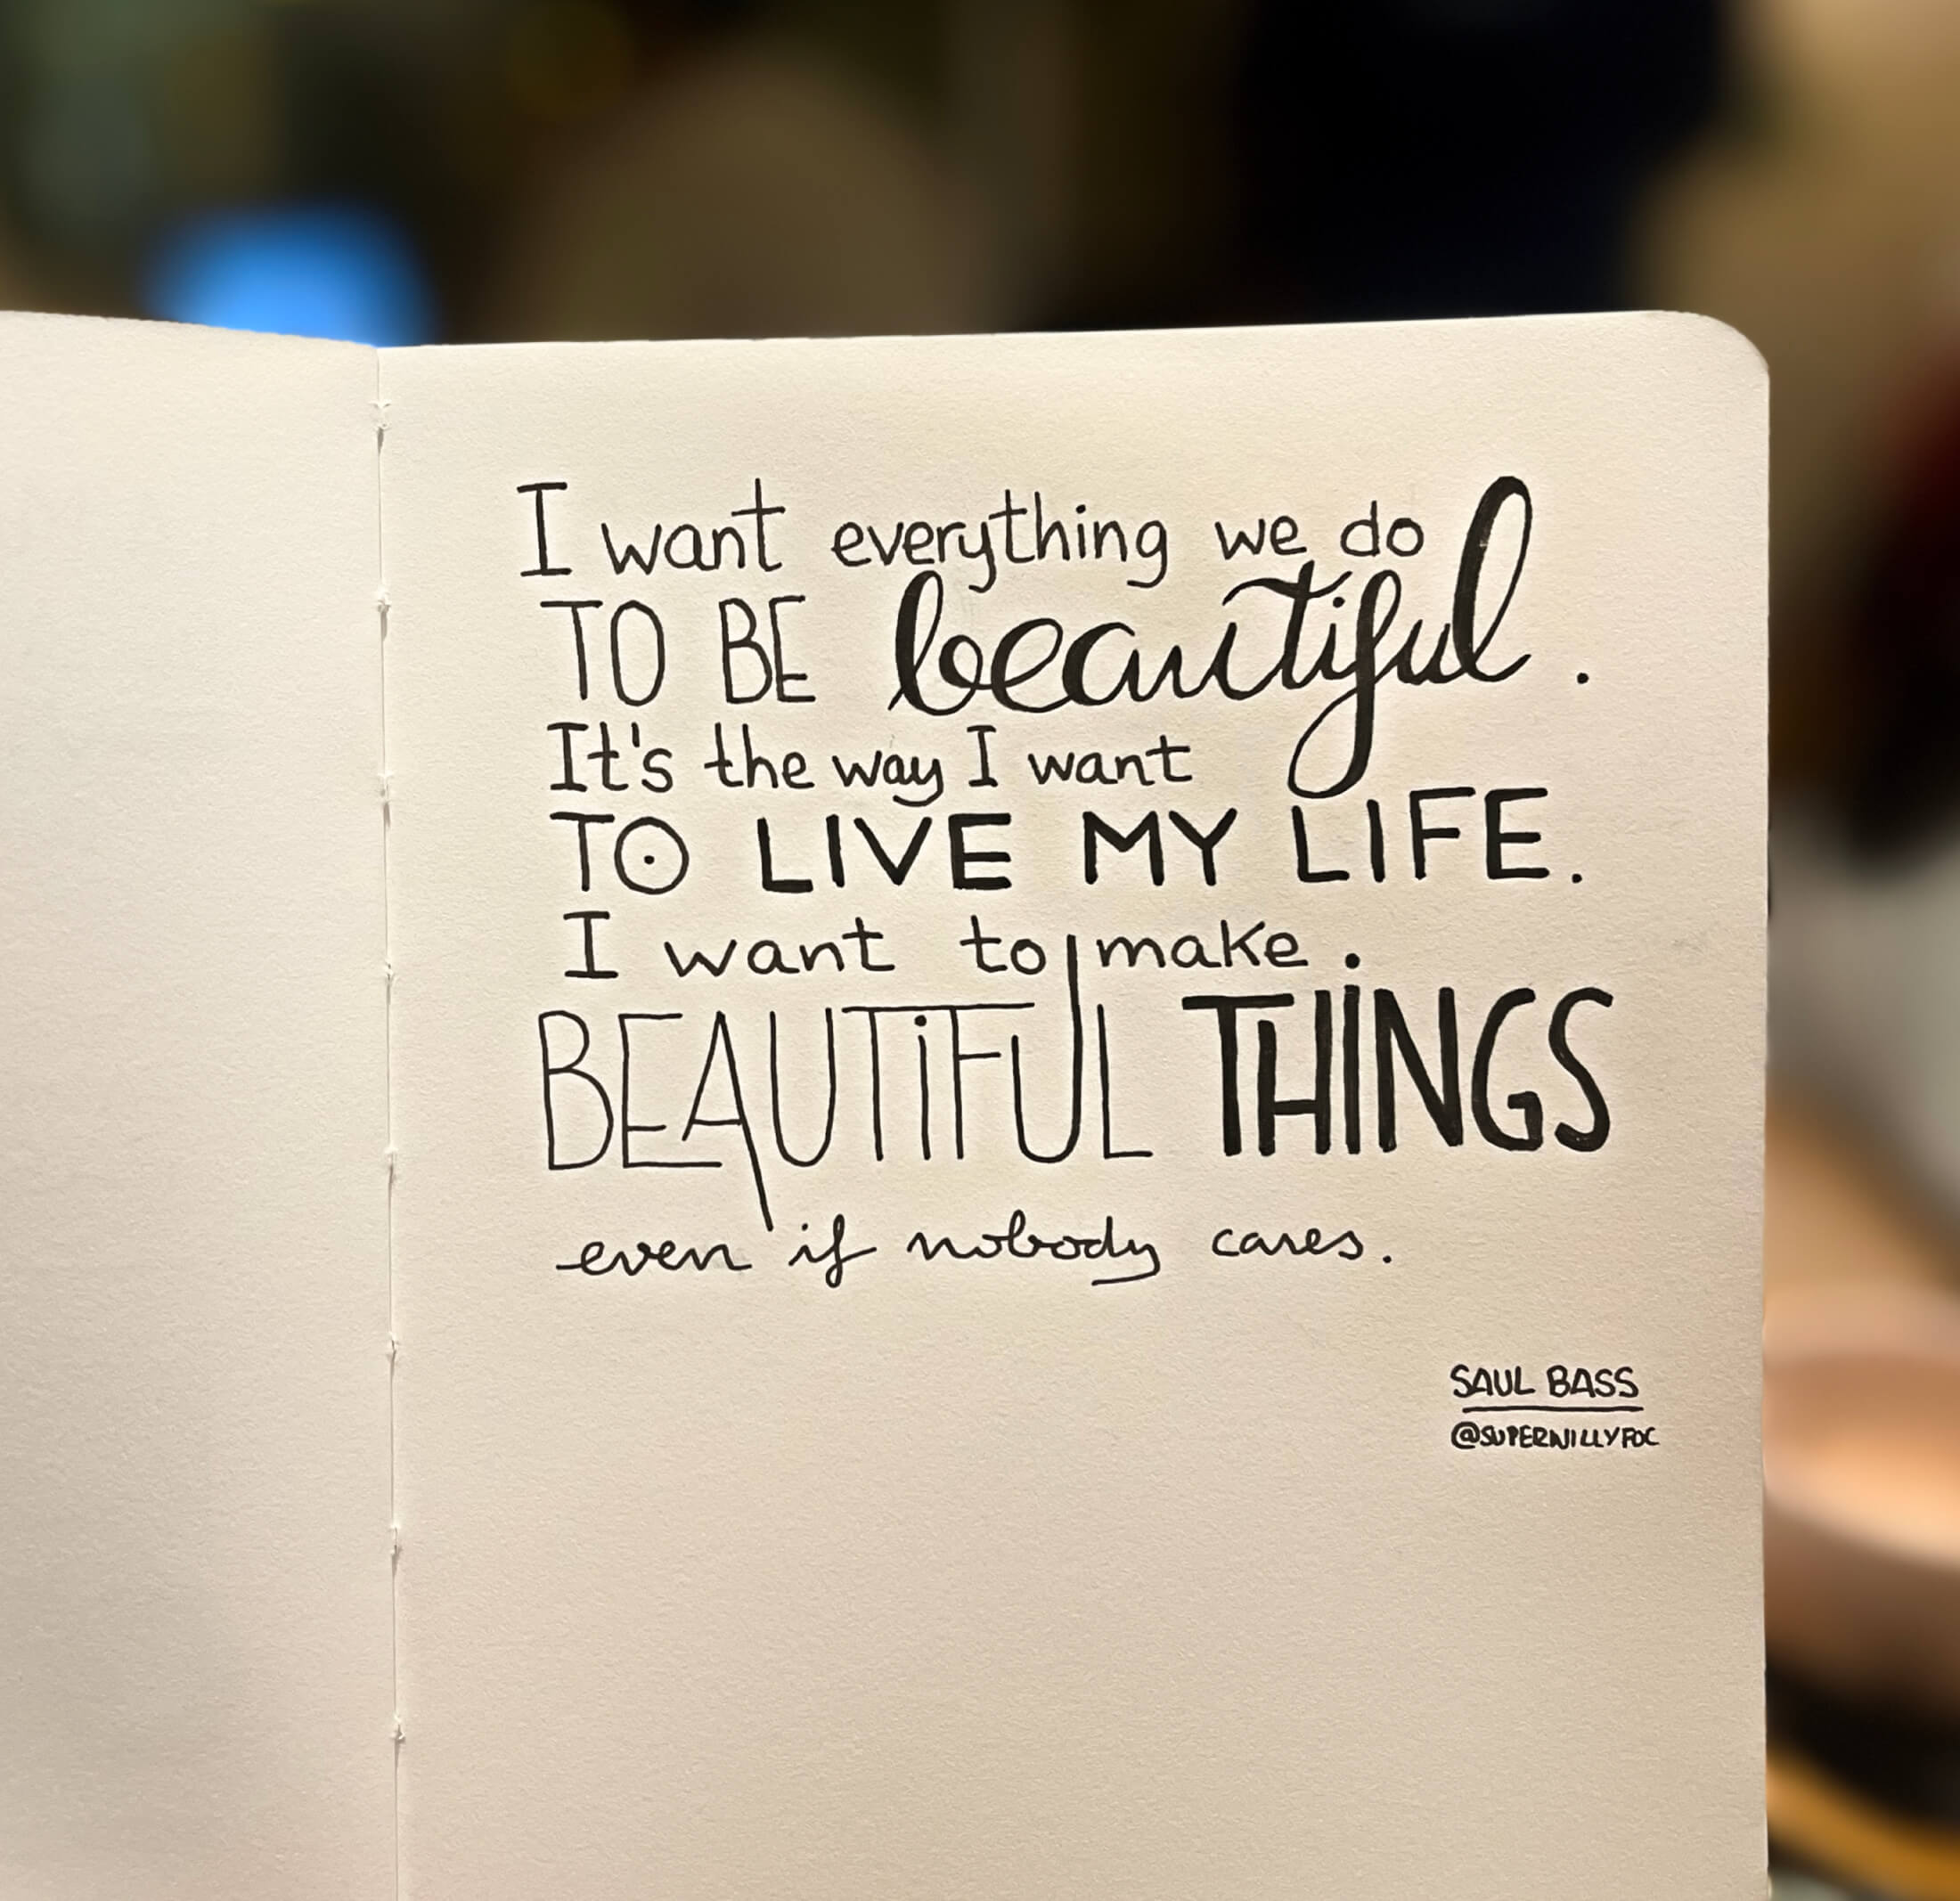 I want everything we do
TO BE beautiful.
It's the way I want
TO LIVE MY LIFE.
I want to make
BEAUTiFUL THiNGS
even if nobody cares.
SAUL BASS